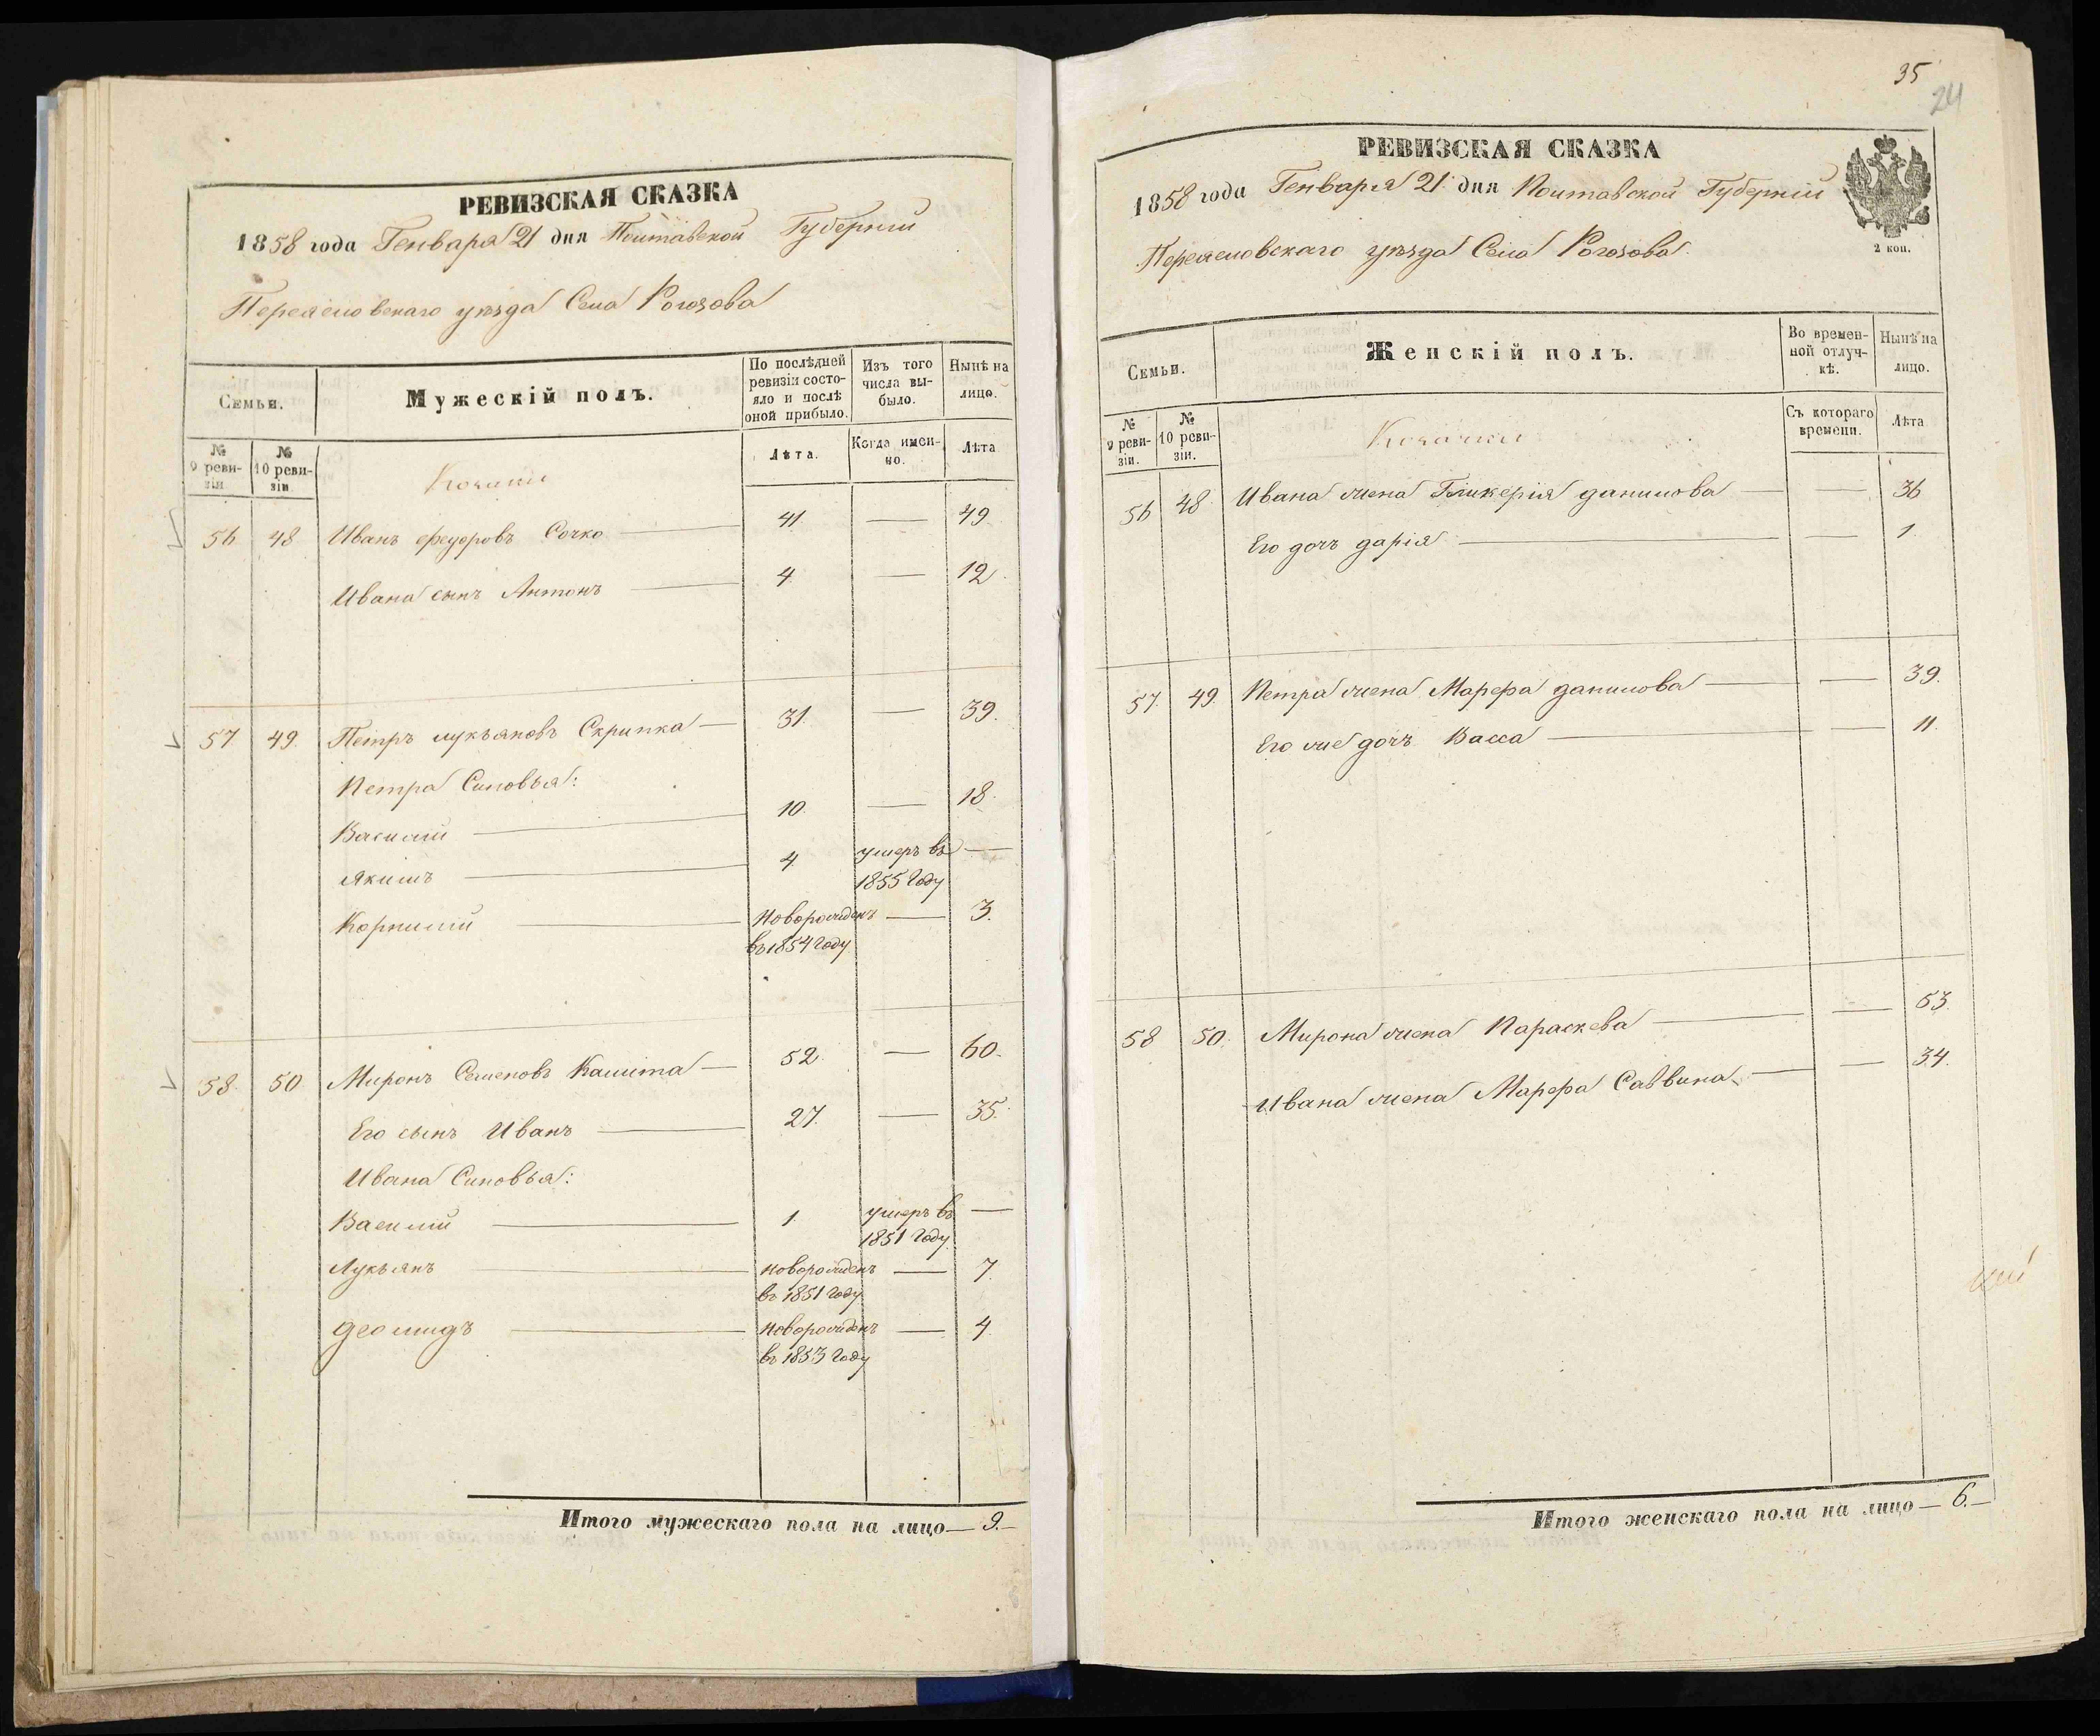 РЕВИЗСКАЯ СКАЗКА
1858 года Генваря 21 дня Полтавской Губерніи
Переясловскаго уѣзда Села Рогозова
Семьи.
Мужескій полъ.
По послѣдней ревизіи состояло и послѣ оной прибыло.
Изъ того числа выбыло.
Нынѣ на лицо.
№ 9 ревизіи
№ 10 ревизіи
Козаки
Лѣта.
Когда именно.
Лѣта
56 48 Иванъ Федоровъ Сочко — 41 — 49
Ивана сынъ Антонъ — 4 — 12
57 49. Петръ Лукьяновъ Скрипка — 31. — 39.
Петра Синовья:
Василій — 10. — 18.
Якимъ — 4 умеръ въ —
1855 Году
Корнилій — Новорожденъ — 3.
въ 1854 Году
58. 50 Миронъ Семеновъ Калита — 52. — 60.
Его сынъ Иванъ — 27. — 35.
Ивана Синовья:
Василій — 1. умеръ въ —
1851 Году
Лукьянъ — новорожденъ — 7.
въ 1851 Году
Деомидъ — новорожденъ — 4
въ 1853 Году
Итого мужескаго пола на лицо — 9. —
35
24
РЕВИЗСКАЯ СКАЗКА
1858 года Генваря 21 дня Полтавской Губерніи
2 коп.
Переясловскаго уѣзда Села Рогозова.
Семьи.
Женскій полъ.
Во временной отлучкѣ.
Нынѣ на лицо.
№ 9 ревизіи.
№ 10 ревизіи.
Козачки
Съ котораго времени.
Лѣта
56 48 Ивана жена Гликерія Данилова — — 36
Его дочь Дарія — — 1
57. 49. Петра жена Марфа Данилова — — 39.
Его же дочь Васса — — 11.
58 50. Мирона жена Параскева — — 53
Ивана жена Марфа Саввина — — 34.
Итого женскаго пола на лицо — 6. —